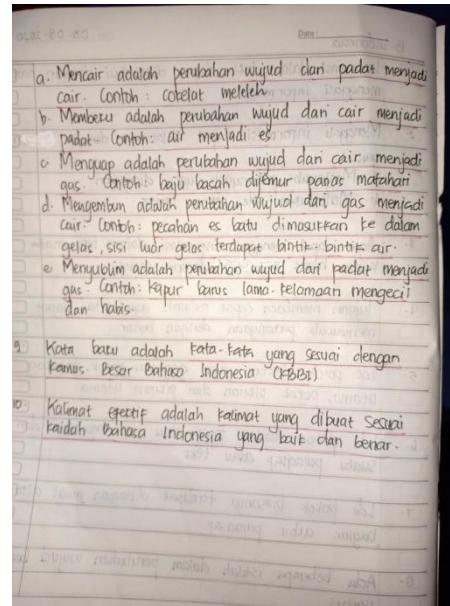 Date :
a. Mencair adalah perubahan wujud dari padat menjadi
cair. Contoh : cokelat meleleh
b. Membeku adalah perubahan wujud dari cair menjadi
padat Contoh: air menjadi es
c Menguap adalah perubahan wujud dari cair menjadi
gas. Contoh baju basah dijemur panas matahari
d. Mengembun adalah perubahan wujud dari gas menjadi
cair. Contoh: pecahan es batu dimasukkan ke dalam
gelas, sisi luar gelas terdapat bintik-bintik air.
e Menyublim adalah perubahan wujud dari padat menjadi
gas. Contoh: kapur barus lama-kelamaan mengecil
dan habis.
9. Kata baku adalah kata-kata yang sesuai dengan
Kamus Besar Bahasa Indonesia (KBBI)
10. Kalimat efektif adalah kalimat yang dibuat sesuai
kaidah Bahasa Indonesia yang baik dan benar.